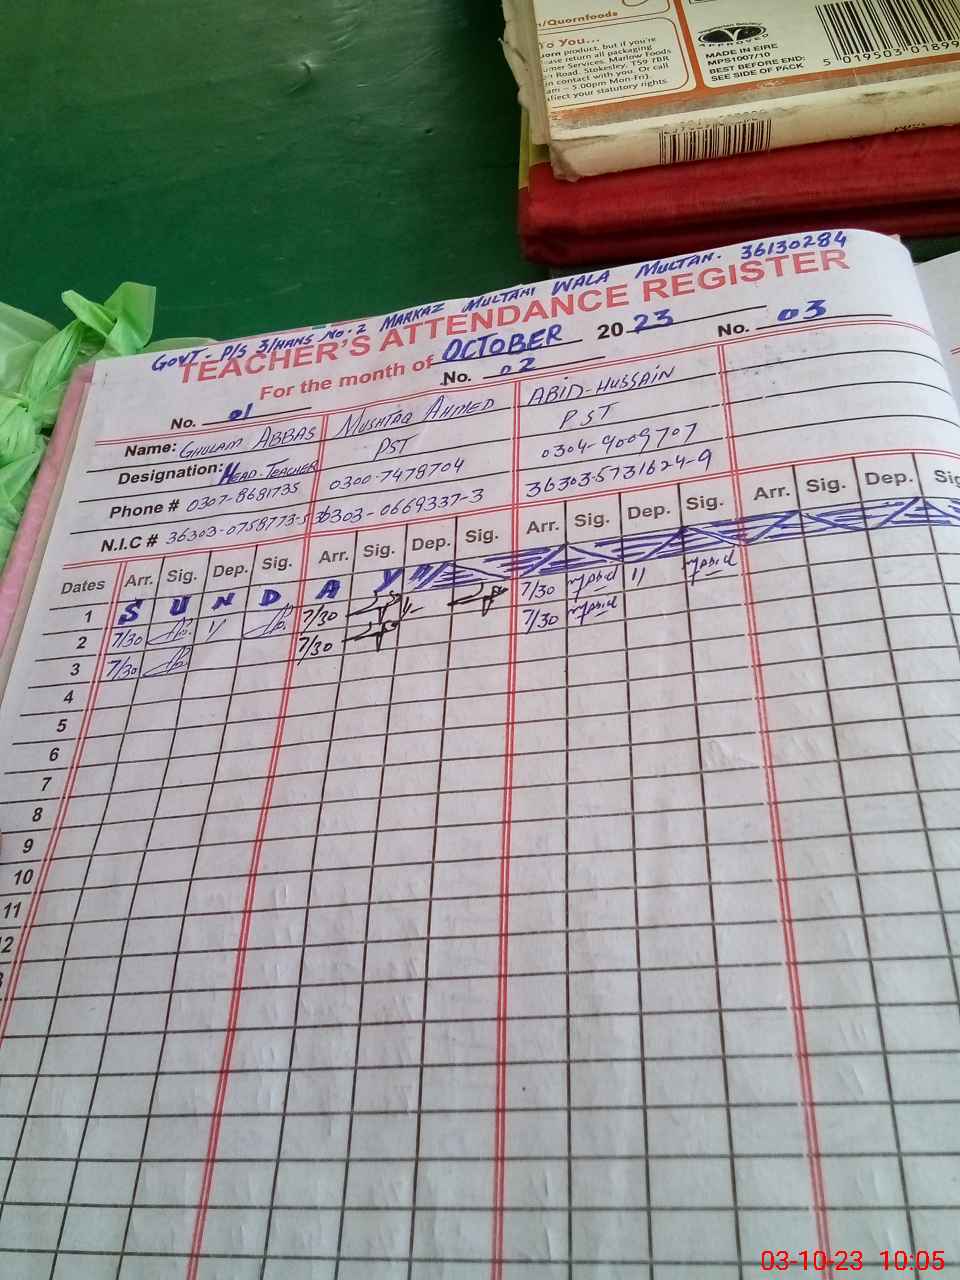 n/Quornfoods
To You...
uorn product, but if you're
ease return all packaging
umer Services, Marlow Foods
n Road, Stokesley, TS9 7BR
in contact with you. Or call
am - 5.00pm Mon-Fri).
affect your statutory rights.
Vegetarian Society
APPROVED
MADE IN EIRE
MPS1007/10
BEST BEFORE END:
SEE SIDE OF PACK
5 019503 01899
GOVT. P/S 3/HANS NO.2 MARKAZ MULTANI WALA MULTAN. 36130284
TEACHER'S ATTENDANCE REGISTER
For the month of OCTOBER 2023
No. 01 No. 02 No. 03
Name: GHULAM ABBAS MUSHTAQ AHMED ABID-HUSSAIN
Designation: HEAD-TEACHER PST PST
Phone # 0307-8681735 0300-7478704 0304-9009707
N.I.C # 36303-0758773-5 36303-0669337-3 36303-5731624-9
Dates Arr. Sig. Dep. Sig. Arr. Sig. Dep. Sig. Arr. Sig. Dep. Sig. Arr. Sig. Dep. Sig
1 S U N D A Y
2 7/30 11 7/30 11 7/30 11
3 7/30 7/30 7/30
4
5
6
7
8
9
10
11
12
03-10-23 10:05